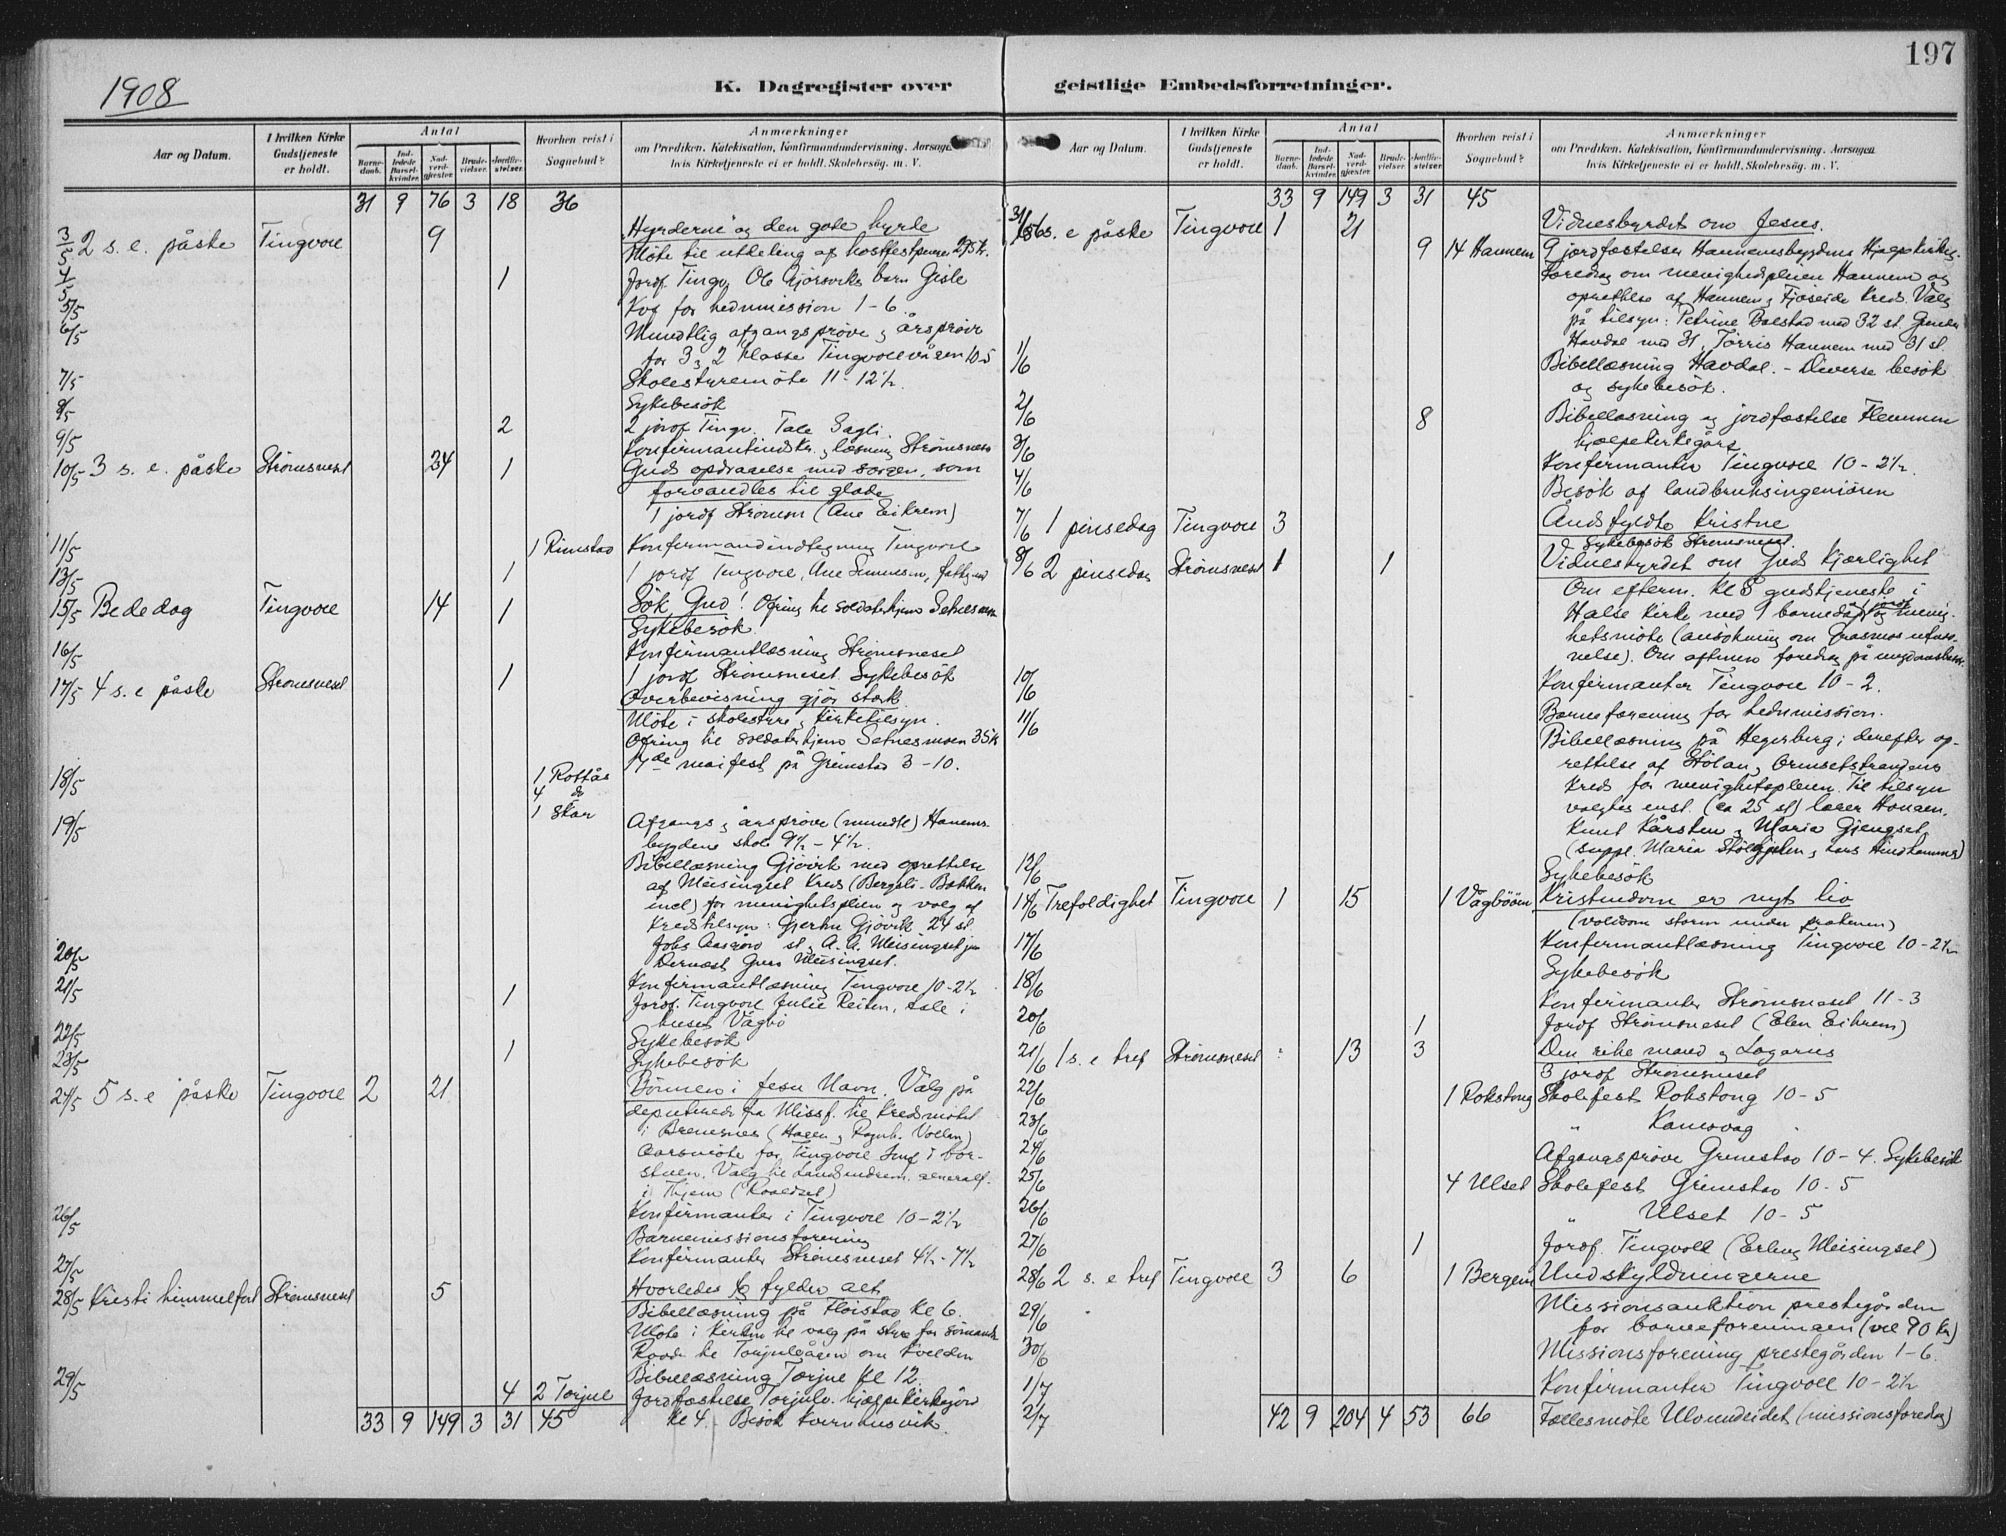 1908
K. Dagregister over
Aar og Datum.
I hvilken Kirke Gudstjeneste er holdt.
Antal
Barne-daab.
Ind-ledede Barsel-kvinder.
Nad-verd-gjæster.
Brude-vielser.
Jordfæ-stelser.
Hvorhen reist i Sognebud?
Anmærkninger
om Prædiken. Katekisation, Konfirmandundervisning. Aarsagen
hvis Kirketjeneste ei er holdt. Skolebesög. m. V.
31 9 76 3 18 36
3/5 2 s. e. påske Tingvoll 9 Hyrderne og den gode hyrde
Möte til utdeling af
4/5 1 Jordf. Tingv. barn Gisle
5/5 Kvf for hedmission 1-6.
6/5 Mundtlig afgangspröve & årspröve
for 3 & 2 klasse Tingvollvågen 10-5
7/5 Skolestyremöte 11-12½.
8/5 Sykebesök
9/5 2 2 jordf Tingv. Tale Sagli.
Konfirmantindskr. & læsning Strömsnes
10/5 3 s. e. påske Strömsneset 24 1 Guds opdragelse med sorgen, som
forvandles til glæde
1 jordf Strömsn (Ane Eikrem)
11/5 1 Rimstad Konfirmandindtegning Tingvoll
13/5 1 1 jordf Tingvoll, Ane
15/5 Bededag Tingvoll 14 1 Sök Gud! Ofring til soldaterhjem Setnesmoen
Sykebesök.
16/5 Konfirmantlæsning Strömsneset
17/5 4 s. e påske Strömsneset 1 1 jordf Strömsneset. Sykebesök
Overbevisning gjör stærk.
Möte i skolestyre & kirketilsyn.
Ofring til soldaterhjem Setnesmoen 35 k
17de maifest på Grimstad 3-10.
18/5 1 Rottås
4 do
1 Skar
19/5 Afgangs & årspröve (mundtl) Hanems-
bygdens skole 9½-4½.
Bibellæsning Gjövik med oprettelse
af Meisingset Kreds (Bergsli-Bakken
incl) for menighetspleien og valg af
Kredstilsyn: Gjövik 24 st.
st, A. A. Meisingset jun
Dernæst Meisingset.
20/5 Konfirmantlæsning Tingvoll 10-2½
21/5 1 Jordf. Tingvoll Julie Reiten, tale i
huset Vågbö
22/5 Sykebesök
23/5 1 Sykebesök
24/5 5 s. e påske Tingvoll 2 21 Bönnen i Jesu Navn. Valg på
deputerede fra Missf. til Kredsmötet
i (Hagen & Ragnh. Vollan)
Aarsmöte for Tingvoll Imf i bor-
stuen. Valg til generalf.
i Thjem (Roaldset)
26/5 Konfirmanter i Tingvoll 10-2½
Barnemissionsforening
27/5 Konfirmanter Strömsneset 4½-7½
28/5 Kristi himmelfart Strömsneset 5 Hvorledes fylder alt
Bibellæsning på Flöistad kl 6.
Möte i kirken til valg på styre for sömands
29/5 Bibellæsning Torjul kl 12.
4 2 Torjul Jordfæstelse Torjulv. hjælpekirkegård
33 9 149 3 31 45 kl 4. Besök Kvernhusvik.
197
geistlige Embedsforretninger.
Aar og Datum.
I hvilken Kirke Gudstjeneste er holdt.
Antal
Barne-daab.
Ind-ledede Barsel-kvinder.
Nad-verd-gjæster.
Brude-vielser.
Jordfæ-stelser.
Hvorhen reist i Sognebud?
Anmærkninger
om Prædiken. Katekisation, Konfirmandundervisning. Aarsagen
hvis Kirketjeneste ei er holdt. Skolebesög. m. V.
33 9 149 3 31 45
31/5 6 s. e påske Tingvoll 1 21 Vidnesbyrdet om Jesus.
9 14 Hannem 9 jordfæstelser Hannemsbygdens Hjælpekirkeg.
Foredrag om menighedspleien Hannem og
oprettelse af Hannem & Fjöseide Kreds. Valg
på tilsyn: Petrine Bolstad med 32 st.
Havdal med 31, Torris Hannem med 31 st.
1/6 Bibellæsning Havdal. - Diverse besök
og sykebesök.
2/6 8 Bibellæsning og jordfæstelse Flemmen
hjælpekirkegård
3/6 Konfirmanter Tingvoll 10-2½.
4/6 Besök af landbruksingeniören
7/6 1 pinsedag Tingvoll 3 Åndsfyldte Kristne
Sykebesök Strömsneset.
8/6 2 pinsedag Strömsneset 1 1 Vidnesbyrdet om Guds kjærlighet
Om efterm. kl 8 gudstjeneste i
Halse kirke med 1 barnedåp & menig-
hetsmöte (ansökning om
nelse). Om aftenen foredrag på
10/6 Konfirmanter Tingvoll 10-2.
Barneforening for hedmission.
11/6 Bibellæsning på Hegerberg; derefter op-
rettelse af Stölan & Ormsetstrandens
Kreds for menighetspleien. Til tilsyn
valgtes enst. (ca 25 st) lærer Haugen,
Knut Kårsten & Maria Gjengset,
(suppl. Maria & Lars
12/6 Sykebesök
14/6 Trefoldighet Tingvoll 1 15 1 Vågböen Kristendom er nyt liv
(voldsom storm under prækenen)
17/6 Konfirmantlæsning Tingvoll 10-2½
18/6 Sykebesök
Konfirmanter Strömsneset 11-3
20/6 1 Jordf Strömsneset (Elen Eikrem)
21/6 1 s. e tref Strömsneset 13 3 Den rike mand & Lazarus
3 jordf Strömsneset
22/6 1 Rokstong Skolefest Rokstong 10-5
23/6 " Kamsvag "
24/6 Afgangspröve Grimstad 10-4. Sykebesök
25/6 4 Ulset Skolefest Grimstad 10-5
26/6 " Ulset 10-5
27/6 1 Jordf. Tingvoll (Erling Meisingset)
28/6 2 s. e tref Tingvoll 3 6 1 Bergem Undskyldningerne
29/6 Missionsauktion prestegården
for barneforeningen (vel 90 kr)
30/6 Missionsforening prestegården 1-6.
1/7 Konfirmanter Tingvoll 10-2½
2/7 42 9 204 4 53 66 Fællesmöte Ulvundeidet (missionsforedrag)